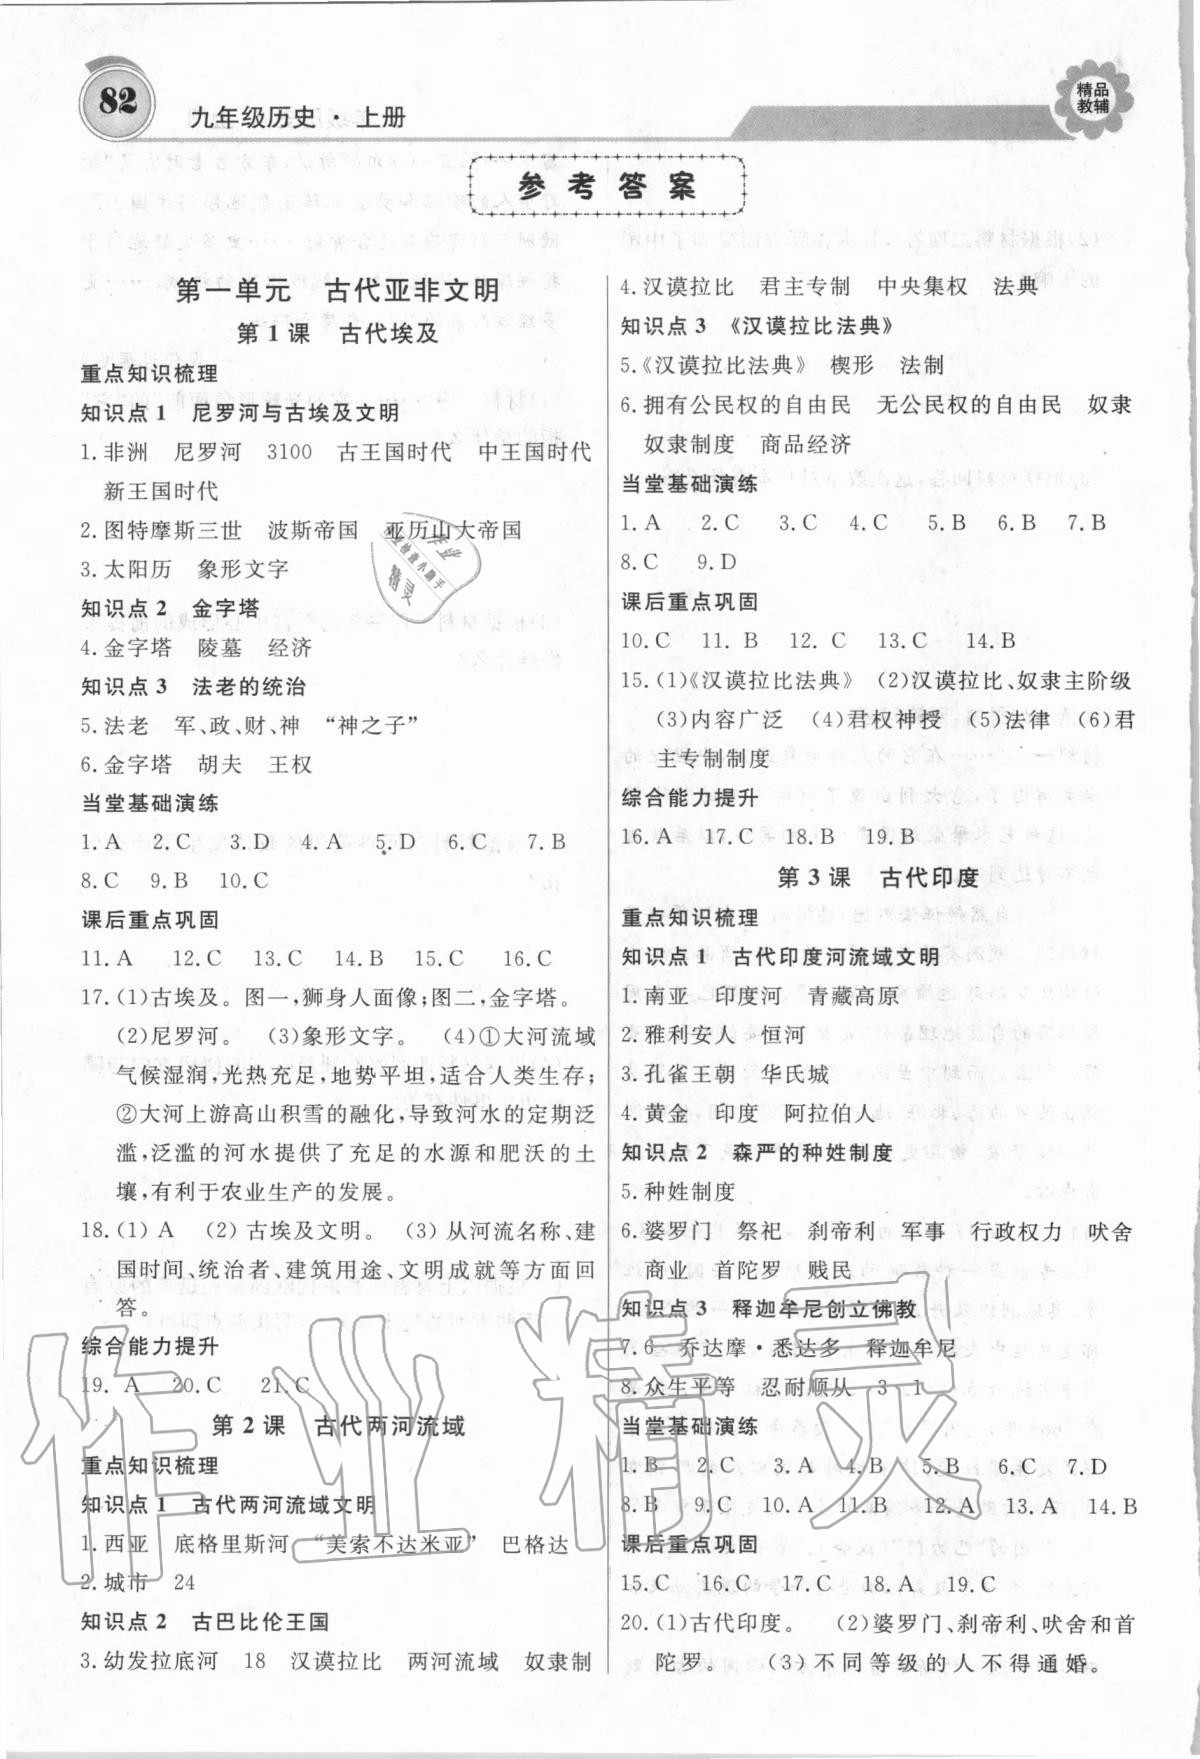 82
九年级历史·上册
精品
教辅
参考答案
第一单元 古代亚非文明
第1课 古代埃及
重点知识梳理
知识点1 尼罗河与古埃及文明
1.非洲 尼罗河 3100 古王国时代 中王国时代
新王国时代
2.图特摩斯三世 波斯帝国 亚历山大帝国
3.太阳历 象形文字
知识点2 金字塔
4.金字塔 陵墓 经济
知识点3 法老的统治
5.法老 军、政、财、神 “神之子”
6.金字塔 胡夫 王权
当堂基础演练
1.A 2.C 3.D 4.A 5.D 6.C 7.B
8.C 9.B 10.C
课后重点巩固
11.A 12.C 13.C 14.B 15.C 16.C
17.(1)古埃及。图一,狮身人面像;图二,金字塔。
(2)尼罗河。 (3)象形文字。 (4)①大河流域
气候湿润,光热充足,地势平坦,适合人类生存;
②大河上游高山积雪的融化,导致河水的定期泛
滥,泛滥的河水提供了充足的水源和肥沃的土
壤,有利于农业生产的发展。
18.(1) A (2) 古埃及文明。 (3) 从河流名称、建
国时间、统治者、建筑用途、文明成就等方面回
答。
综合能力提升
19. A 20.C 21.C
第2课 古代两河流域
重点知识梳理
知识点1 古代两河流域文明
1.西亚 底格里斯河 “美索不达米亚” 巴格达
2.城市 24
知识点2 古巴比伦王国
3.幼发拉底河 18 汉谟拉比 两河流域 奴隶制
4.汉谟拉比 君主专制 中央集权 法典
知识点3 《汉谟拉比法典》
5.《汉谟拉比法典》 楔形 法制
6.拥有公民权的自由民 无公民权的自由民 奴隶
奴隶制度 商品经济
当堂基础演练
1.A 2.C 3.C 4.C 5.B 6.B 7.B
8.C 9.D
课后重点巩固
10.C 11. B 12. C 13.C 14.B
15.(1)《汉谟拉比法典》 (2)汉谟拉比、奴隶主阶级
(3)内容广泛 (4)君权神授 (5)法律 (6)君
主专制制度
综合能力提升
16.A 17.C 18.B 19.B
第3课 古代印度
重点知识梳理
知识点1 古代印度河流域文明
1.南亚 印度河 青藏高原
2.雅利安人 恒河
3.孔雀王朝 华氏城
4.黄金 印度 阿拉伯人
知识点2 森严的种姓制度
5.种姓制度
6.婆罗门 祭祀 刹帝利 军事 行政权力 吠舍
商业 首陀罗 贱民
知识点3 释迦牟尼创立佛教
7.6 乔达摩·悉达多 释迦牟尼
8.众生平等 忍耐顺从 3 1
当堂基础演练
1.B 2.C 3.A 4.A 5.B 6.C 7.D
8.B 9.C 10.A 11.B 12.A 13.A 14.B
课后重点巩固
15.C 16.C 17.C 18.A 19.C
20.(1)古代印度。 (2)婆罗门、刹帝利、吠舍和首
陀罗。 (3)不同等级的人不得通婚。
作业
作业检查小助手
精灵
作业精灵